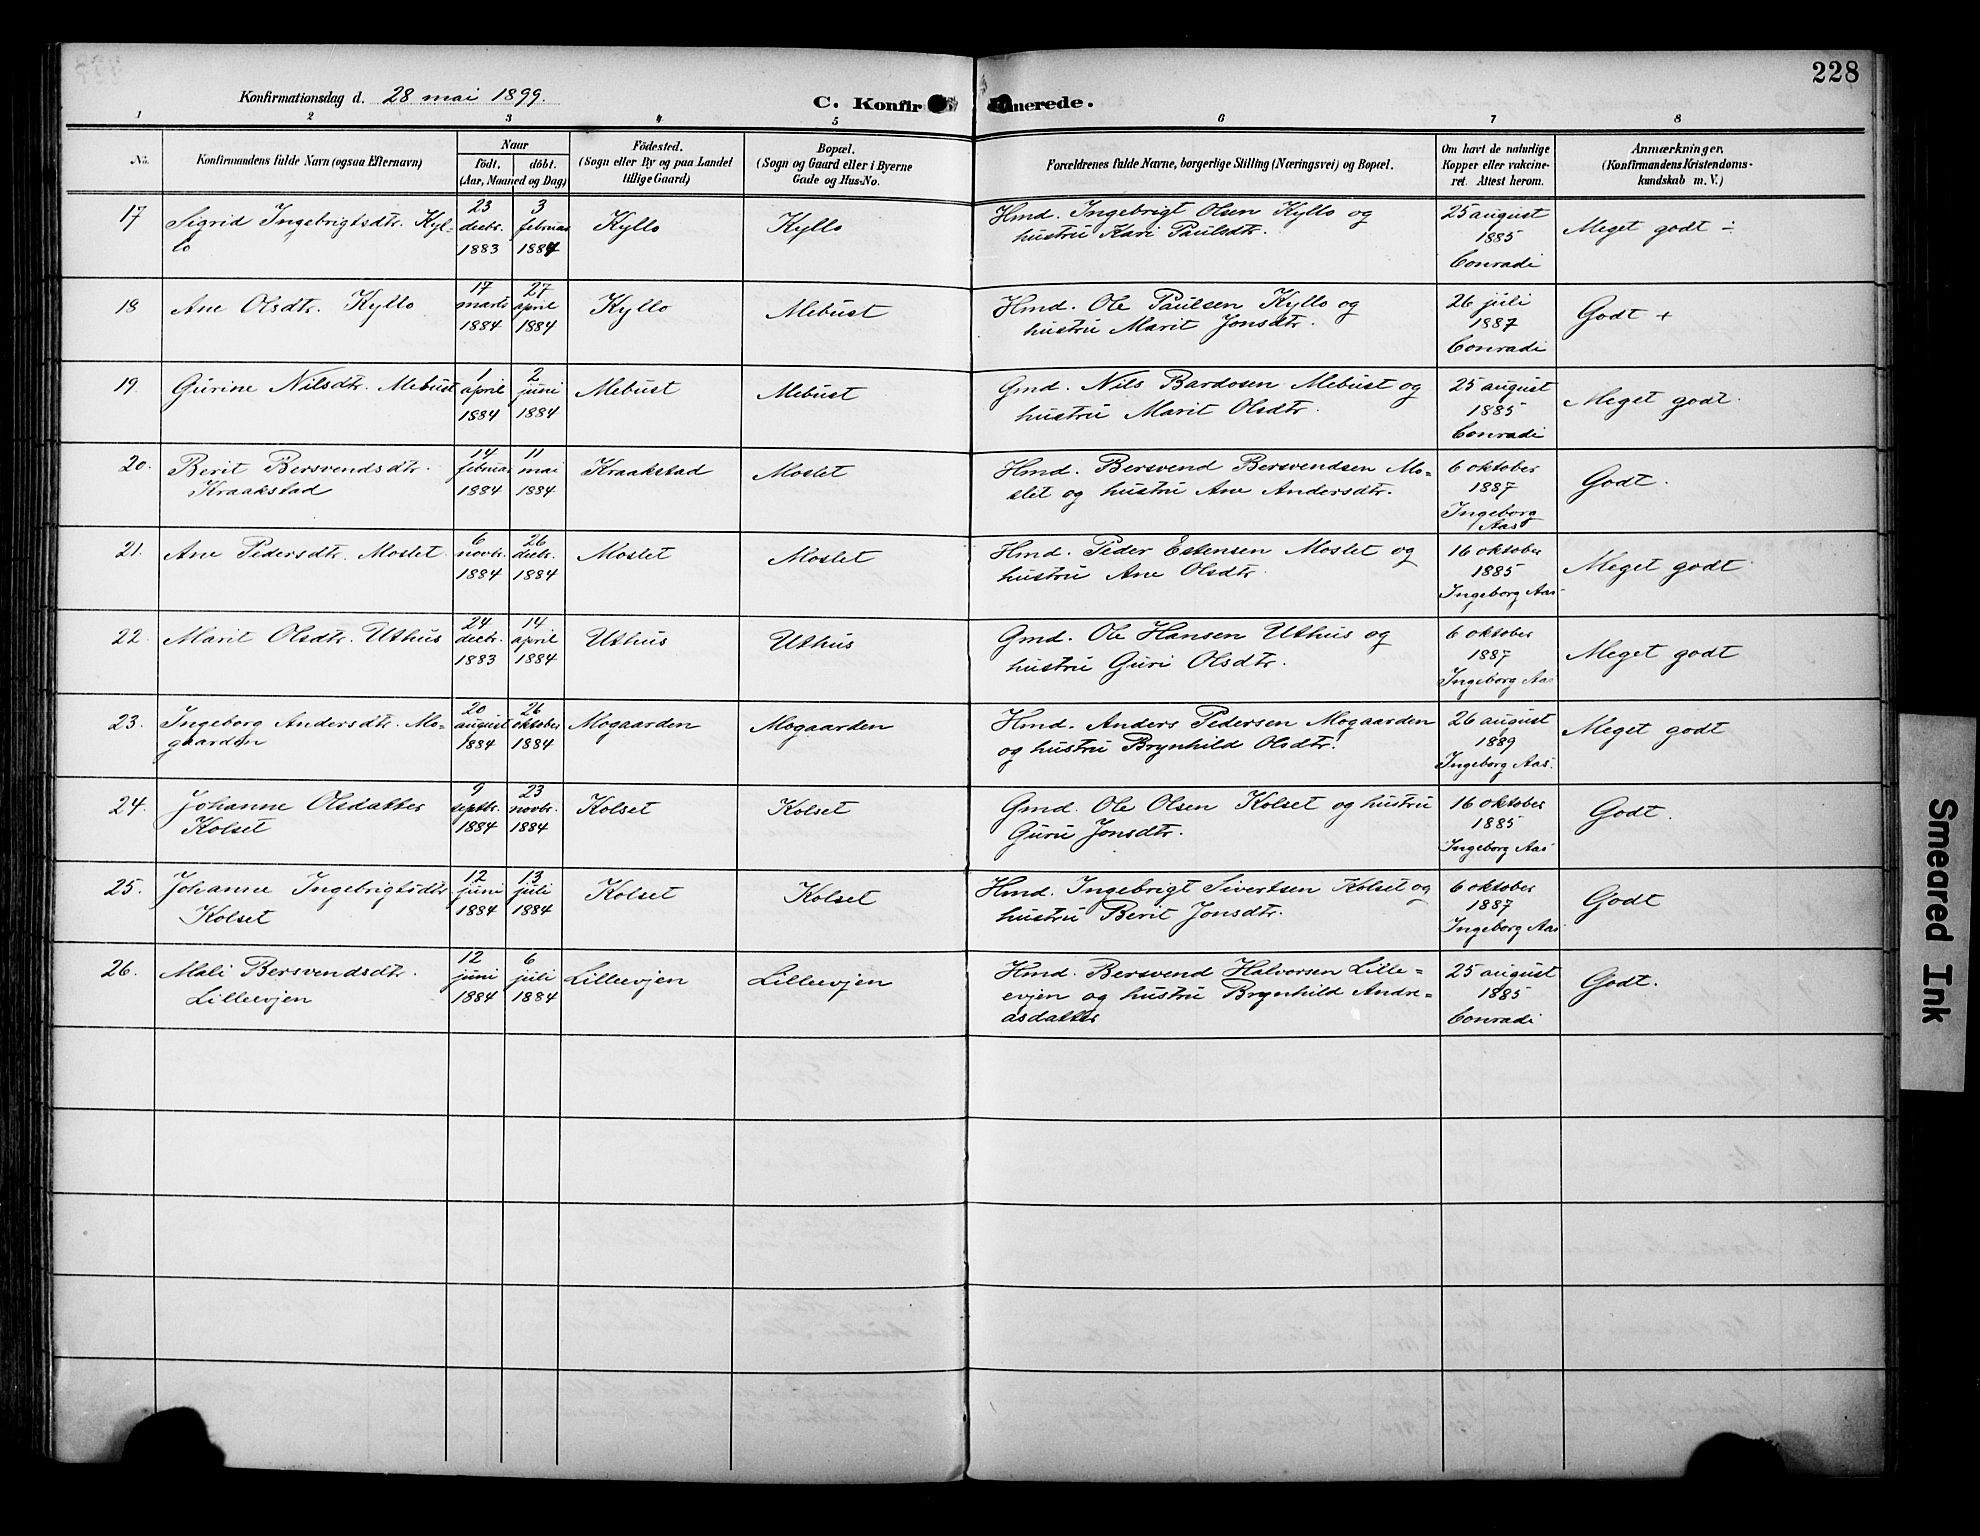 228
Konfirmationsdag d. 28 mai 1899.
C. Konfir merede.
1 2 3 4 5 6 7 8
No.
Konfirmandens fulde Navn (ogsaa Efternavn)
Naar
født. døbt.
(Aar, Maaned og Dag)
Födested.
(Sogn eller By og paa Landet
tillige Gaard)
Bopæl.
(Sogn og Gaard eller i Byerne
Gade og Hus-No.
Forældrenes fulde Navne, borgerlige Stilling (Næringsvei) og Bopæl.
Om havt de naturlige
Kopper eller vakcine-
ret. Attest herom.
Anmærkninger.
(Konfirmandens Kristendoms-
kundskab m. V.)
17 Sigrid Ingebrigtsdtr. Kyl-
lo
23
decbr.
1883
3
februar
1884
Kyllo
Kyllo
Hmd. Ingebrigt Olsen Kyllo og
hustru Kari Paulsdtr.
25 august
1885
Conradi
Meget godt ÷
18 Ane Olsdtr. Kyllo
17
marts
1884
27
april
1884
Kyllo
Mebust
Hmd. Ole Paulsen Kyllo og
hustru Marit Jonsdtr.
26 juli
1887
Conradi
Godt +
19. Gurine Nilsdtr. Mebust
1
april
1884
2
juni
1884
Mebust
Mebust
Gmd. Nils Bardosen Mebust og
hustru Marit Olsdtr.
25 august
1885
Conradi
Meget godt.
20. Berit Bersvendsdtr.
Kraakstad
14
februar
1884
11
mai
1884
Kraakstad
Moslet
Hmd. Bersvend Bersvendsen Mo-
slet og hustru Ane Andersdtr.
6 oktober
1887
Ingeborg
Aas
Godt.
21. Ane Pedersdtr. Moslet.
6
novbr.
1884
26
decbr.
1884
Moslet
Moslet
Hmd. Peder Estensen Moslet og
hustru Ane Olsdtr.
16 oktober
1885
Ingeborg Aas
Meget godt
22. Marit Olsdtr. Uthus
24
decbr.
1883
14
april
1884
Uthus
Uthus
Gmd. Ole Hansen Uthus og
hustru Guri Olsdtr.
6 oktober
1887
Ingeborg Aas
Meget godt
23. Ingeborg Andersdtr. Mo-
gaarden
20
august
1884
26
oktober
1884
Mogaarden
Mogaarden
Hmd. Anders Pedersen Mogaarden
og hustru Brynhild Olsdtr.
26 august
1889
Ingeborg Aas.
Meget godt
24. Johanne Olsdatter
Kolset
9
septbr.
1884
23
novbr.
1884
Kolset
Kolset
Gmd. Ole Olsen Kolset og hustru
Guru Jonsdtr.
16 oktober
1885
Ingeborg Aas
Godt.
25. Johanne Ingebrigtsdtr.
Kolset
12
juni
1884
13
juli
1884
Kolset
Kolset
Hmd. Ingebrigt Sivertsen Kolset og
hustru Berit Jonsdtr.
6 oktober
1887
Ingeborg Aas
Godt
26. Mali Bersvendsdtr.
Lilleevjen
12
juni
1884
6
juli
1884
Lilleevjen
Lilleevjen
Hmd. Bersvend Halvorsen Lille=
evjen og hustru Brynhild Andre=
asdatter
25 august
1885
Conradi
Godt.
Smeared Ink